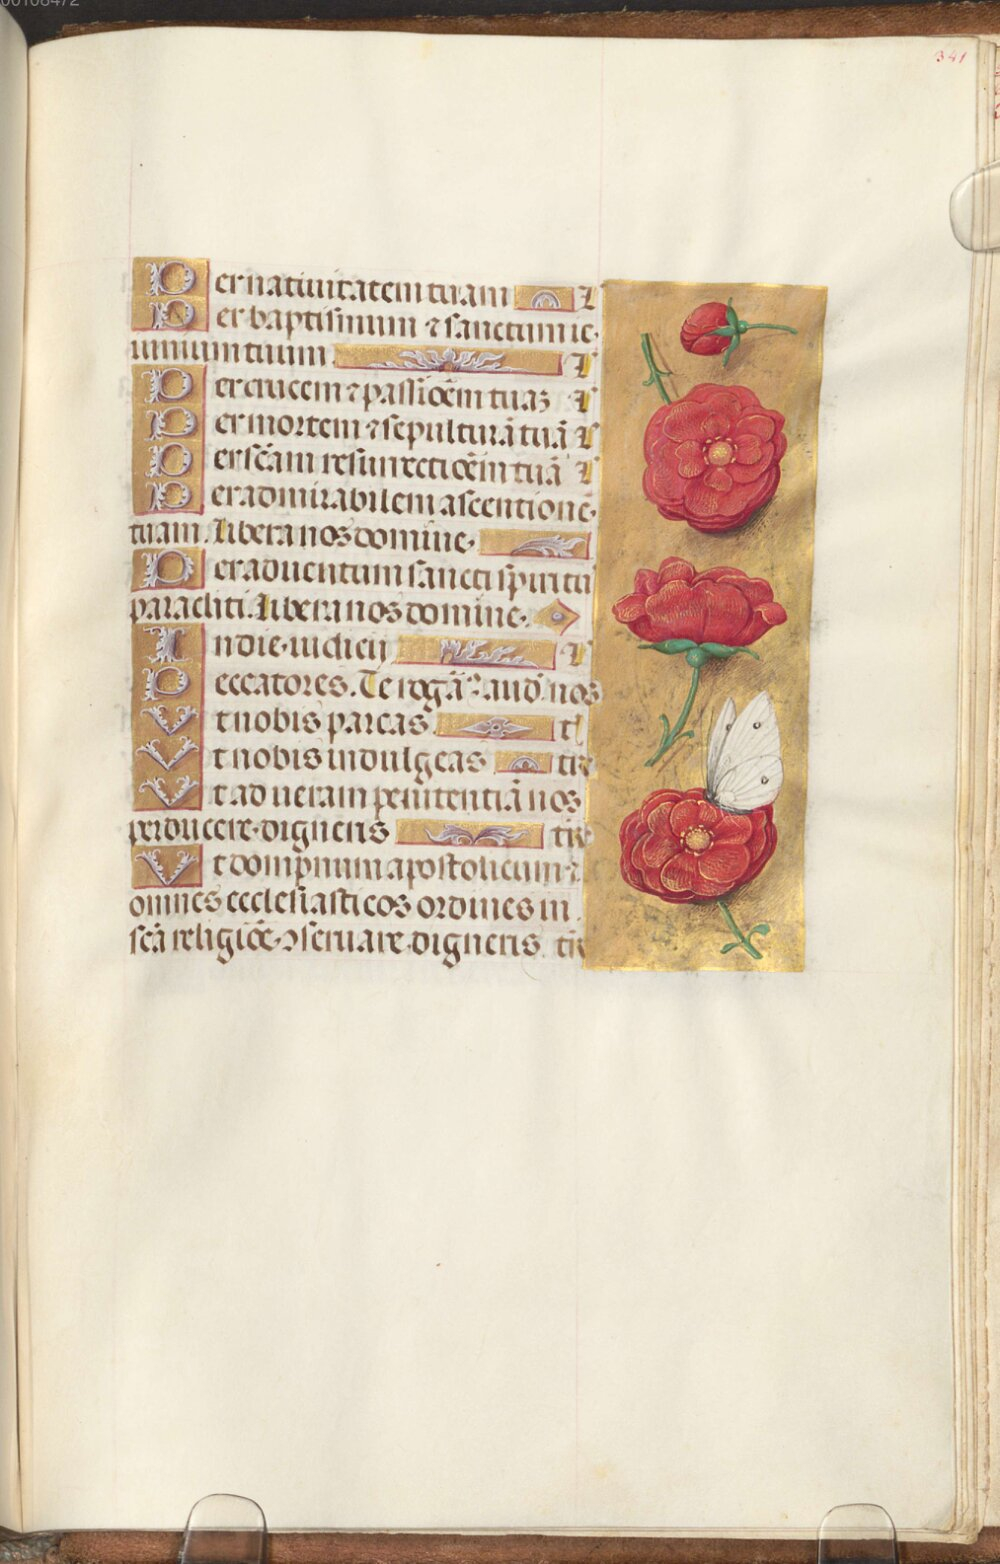 00108472
341
Per natiuitatem tuam L
Per baptismum ⁊ sanctum ie⸗
iunium tuum L
Per crucem ⁊ passiōem tuaʒ L
Per mortem ⁊ sepulturā tuā L
Per scām resurrectiōem tuā L
Per admirabilem ascentionē
tuam. Libera nos domine.
Per aduentum sancti spiritu
paracliti. Libera nos domine.
In die iudicii L
Peccatores. Te rogam̄ꝰ aud̄ nos
Vt nobis parcas t
Vt nobis indulgeas tir̄
Vt ad ueram penitentiā nos
perducere digneris tir̄
Vt dompnum apostolicum ⁊
omnes ecclesiasticos ordines in
scā religiōe ↄseruare digneris tir̄